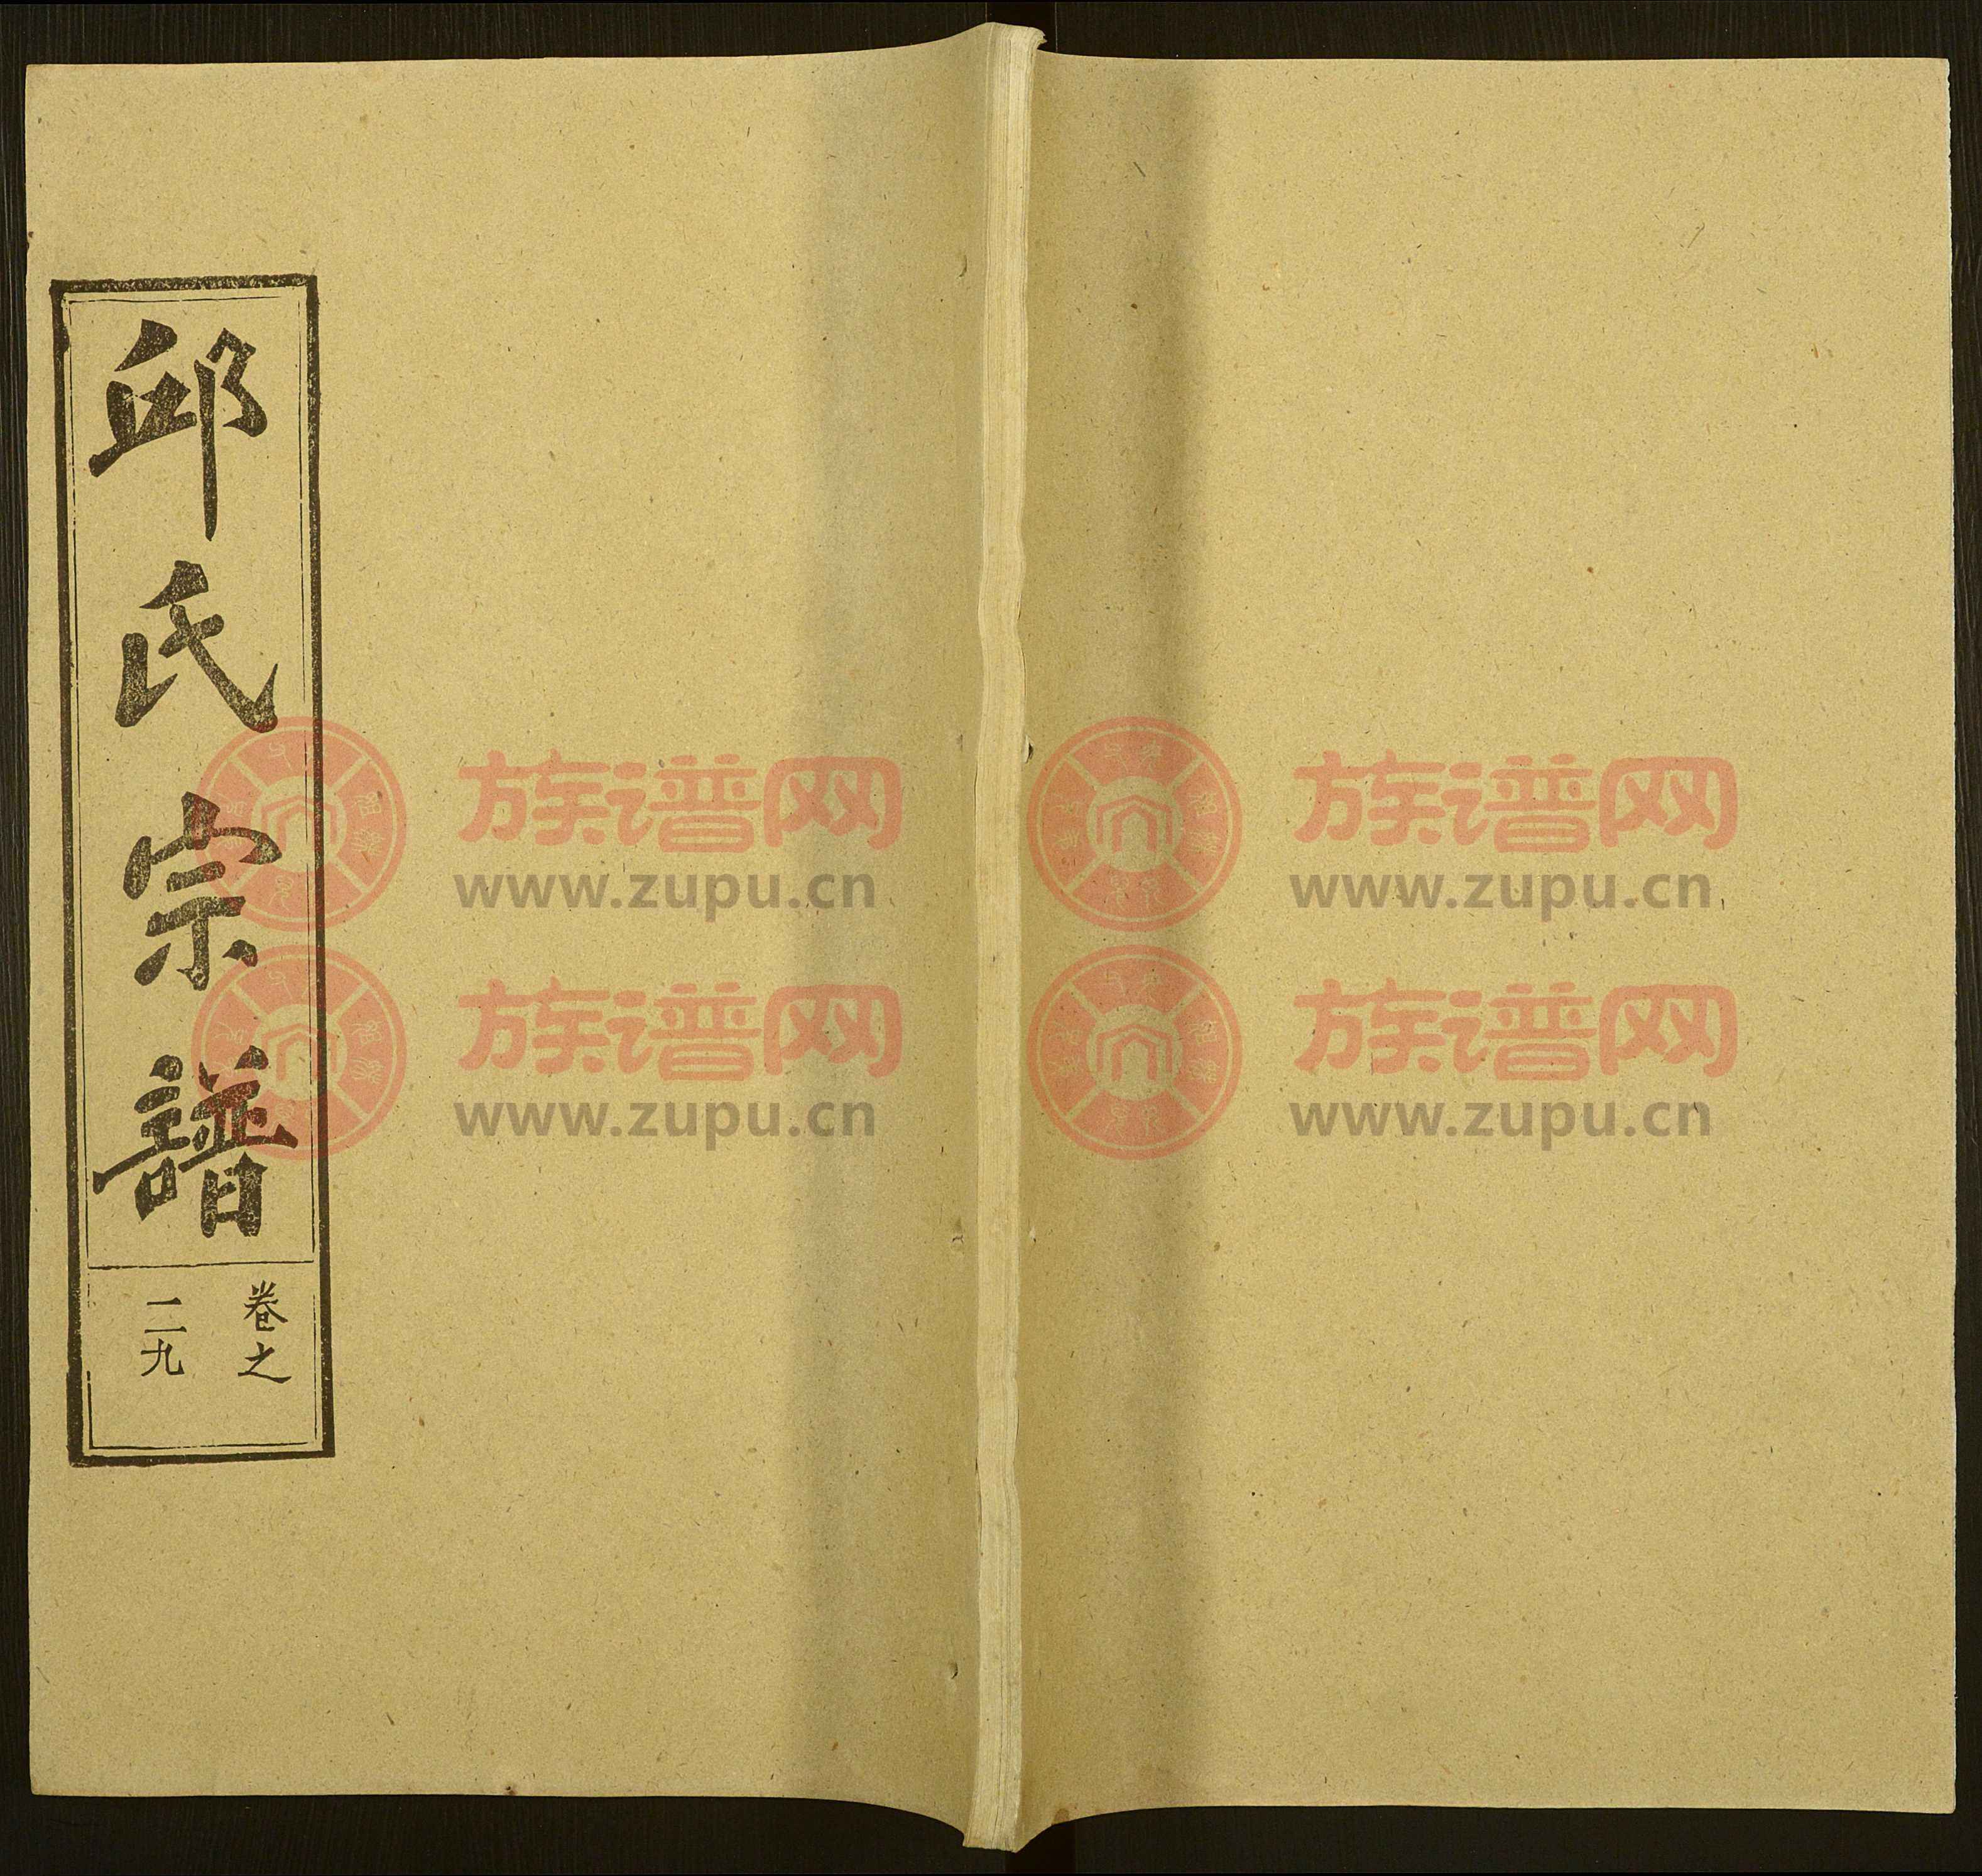 邱氏宗譜
卷之
二九
族谱网
www.zupu.cn
族谱网
www.zupu.cn
族谱网
www.zupu.cn
族谱网
www.zupu.cn